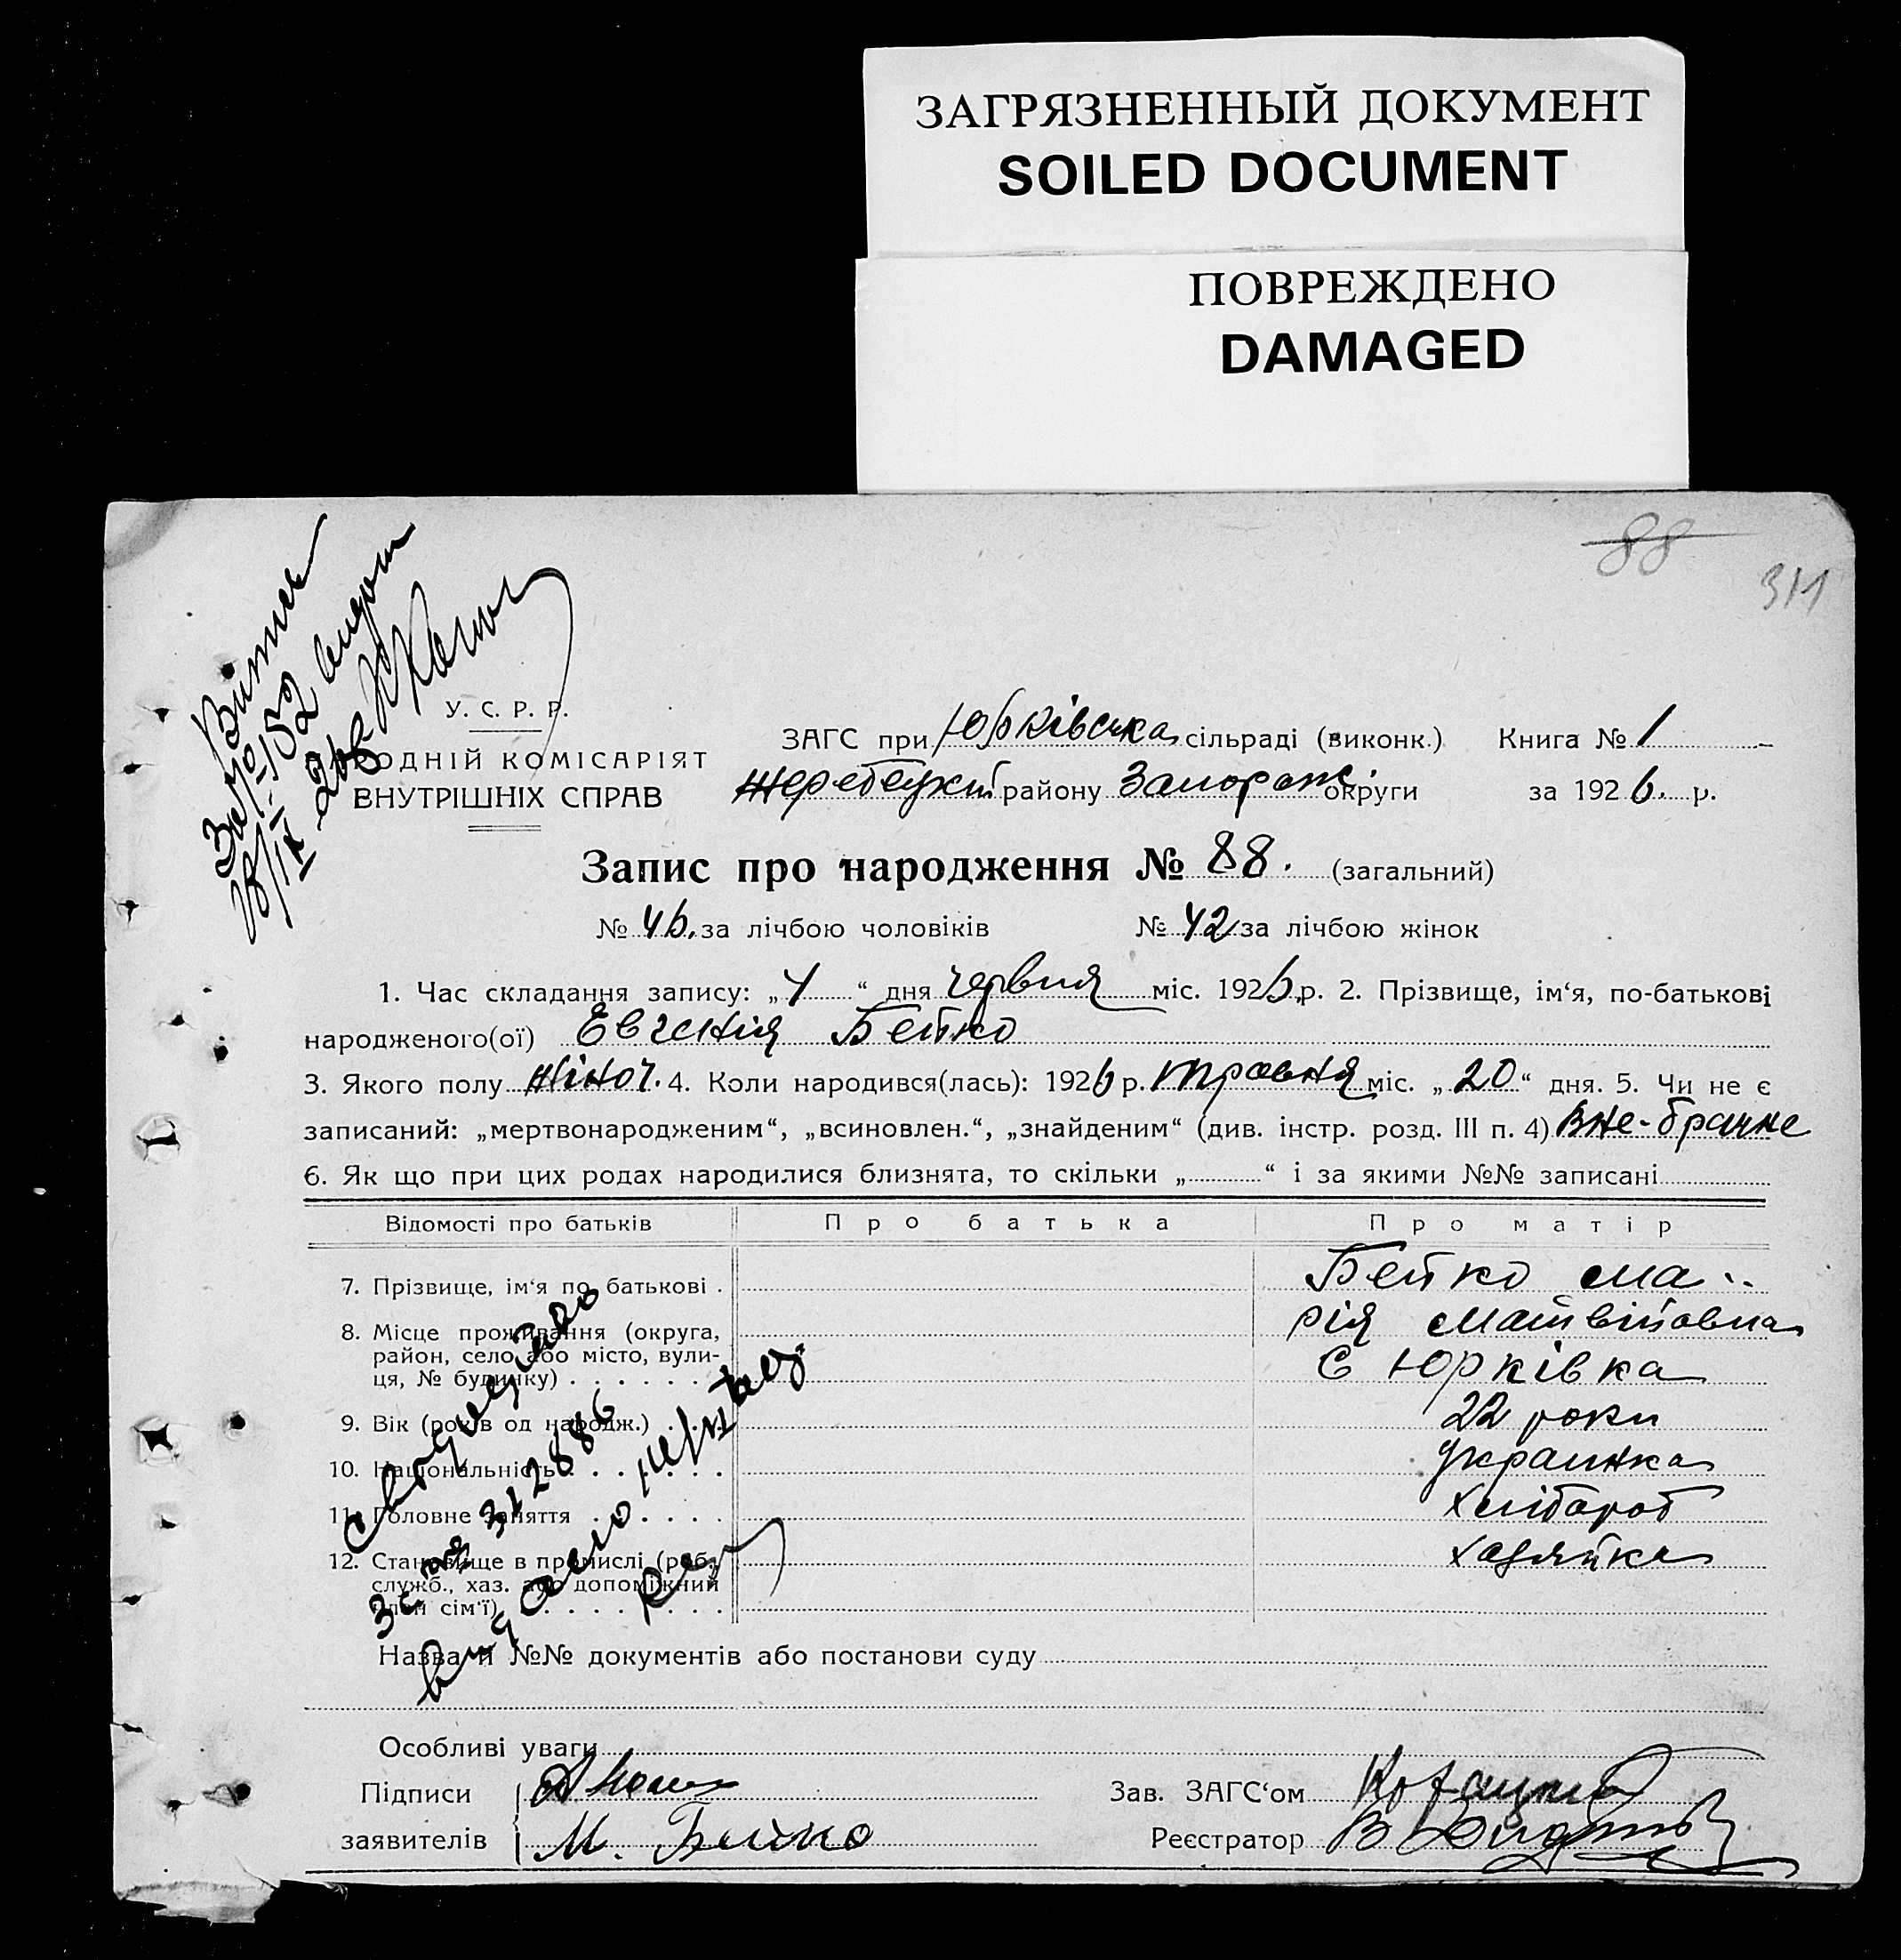 ЗАГРЯЗНЕННЫЙ ДОКУМЕНТ
SOILED DOCUMENT
ПОВРЕЖДЕНО
DAMAGED
88
311
У. С. Р. Р.
НАРОДНІЙ КОМІСАРІЯТ
ВНУТРІШНІХ СПРАВ
ЗАГС при Юрківська сільраді (виконк.) Книга № 1
Жеребецький району Запорож. округи за 1926. р.
Запис про народження № 88. (загальний)
№ 46. за лічбою чоловіків № 42 за лічбою жінок
1. Час складання запису: „4“ дня червня міс. 1926 р. 2. Прізвище, ім‘я, по-батькові
народженого(ої) Евгенія Бейко
3. Якого полу жіноч. 4. Коли народився(лась): 1926 р. травня міс. „20“ дня. 5. Чи не є
записаний: „мертвонародженим“, „всиновлен.“, „знайденим“ (див. інстр. розд. III п. 4) вне-брачне
6. Як що при цих родах народилися близнята, то скільки „ “ і за якими №№ записані
Відомості про батьків Про батька Про матір
7. Прізвище, ім‘я по батькові . Бейко Ма-
8. Місце проживання (округа, рія Матвійовна
район, село або місто, вули-
ця, № будинку) . . . . . . с Юрківка
9. Вік (років од народж.) . . . . 22 роки
10. Національність . . . . . . . украинка
11. Головне заняття . . . . . . хлібороб
12. Становище в промислі (роб., хазяйка
служб., хаз. або допоміжний
член сім‘ї) . . . . . . . . .
Назва й №№ документів або постанови суду
Особливі уваги
Підписи
заявителів М. Бейко
Зав. ЗАГС‘ом
Реєстратор
Витяг
За № 152 видан
Свідоцтво
за № 31288
видано